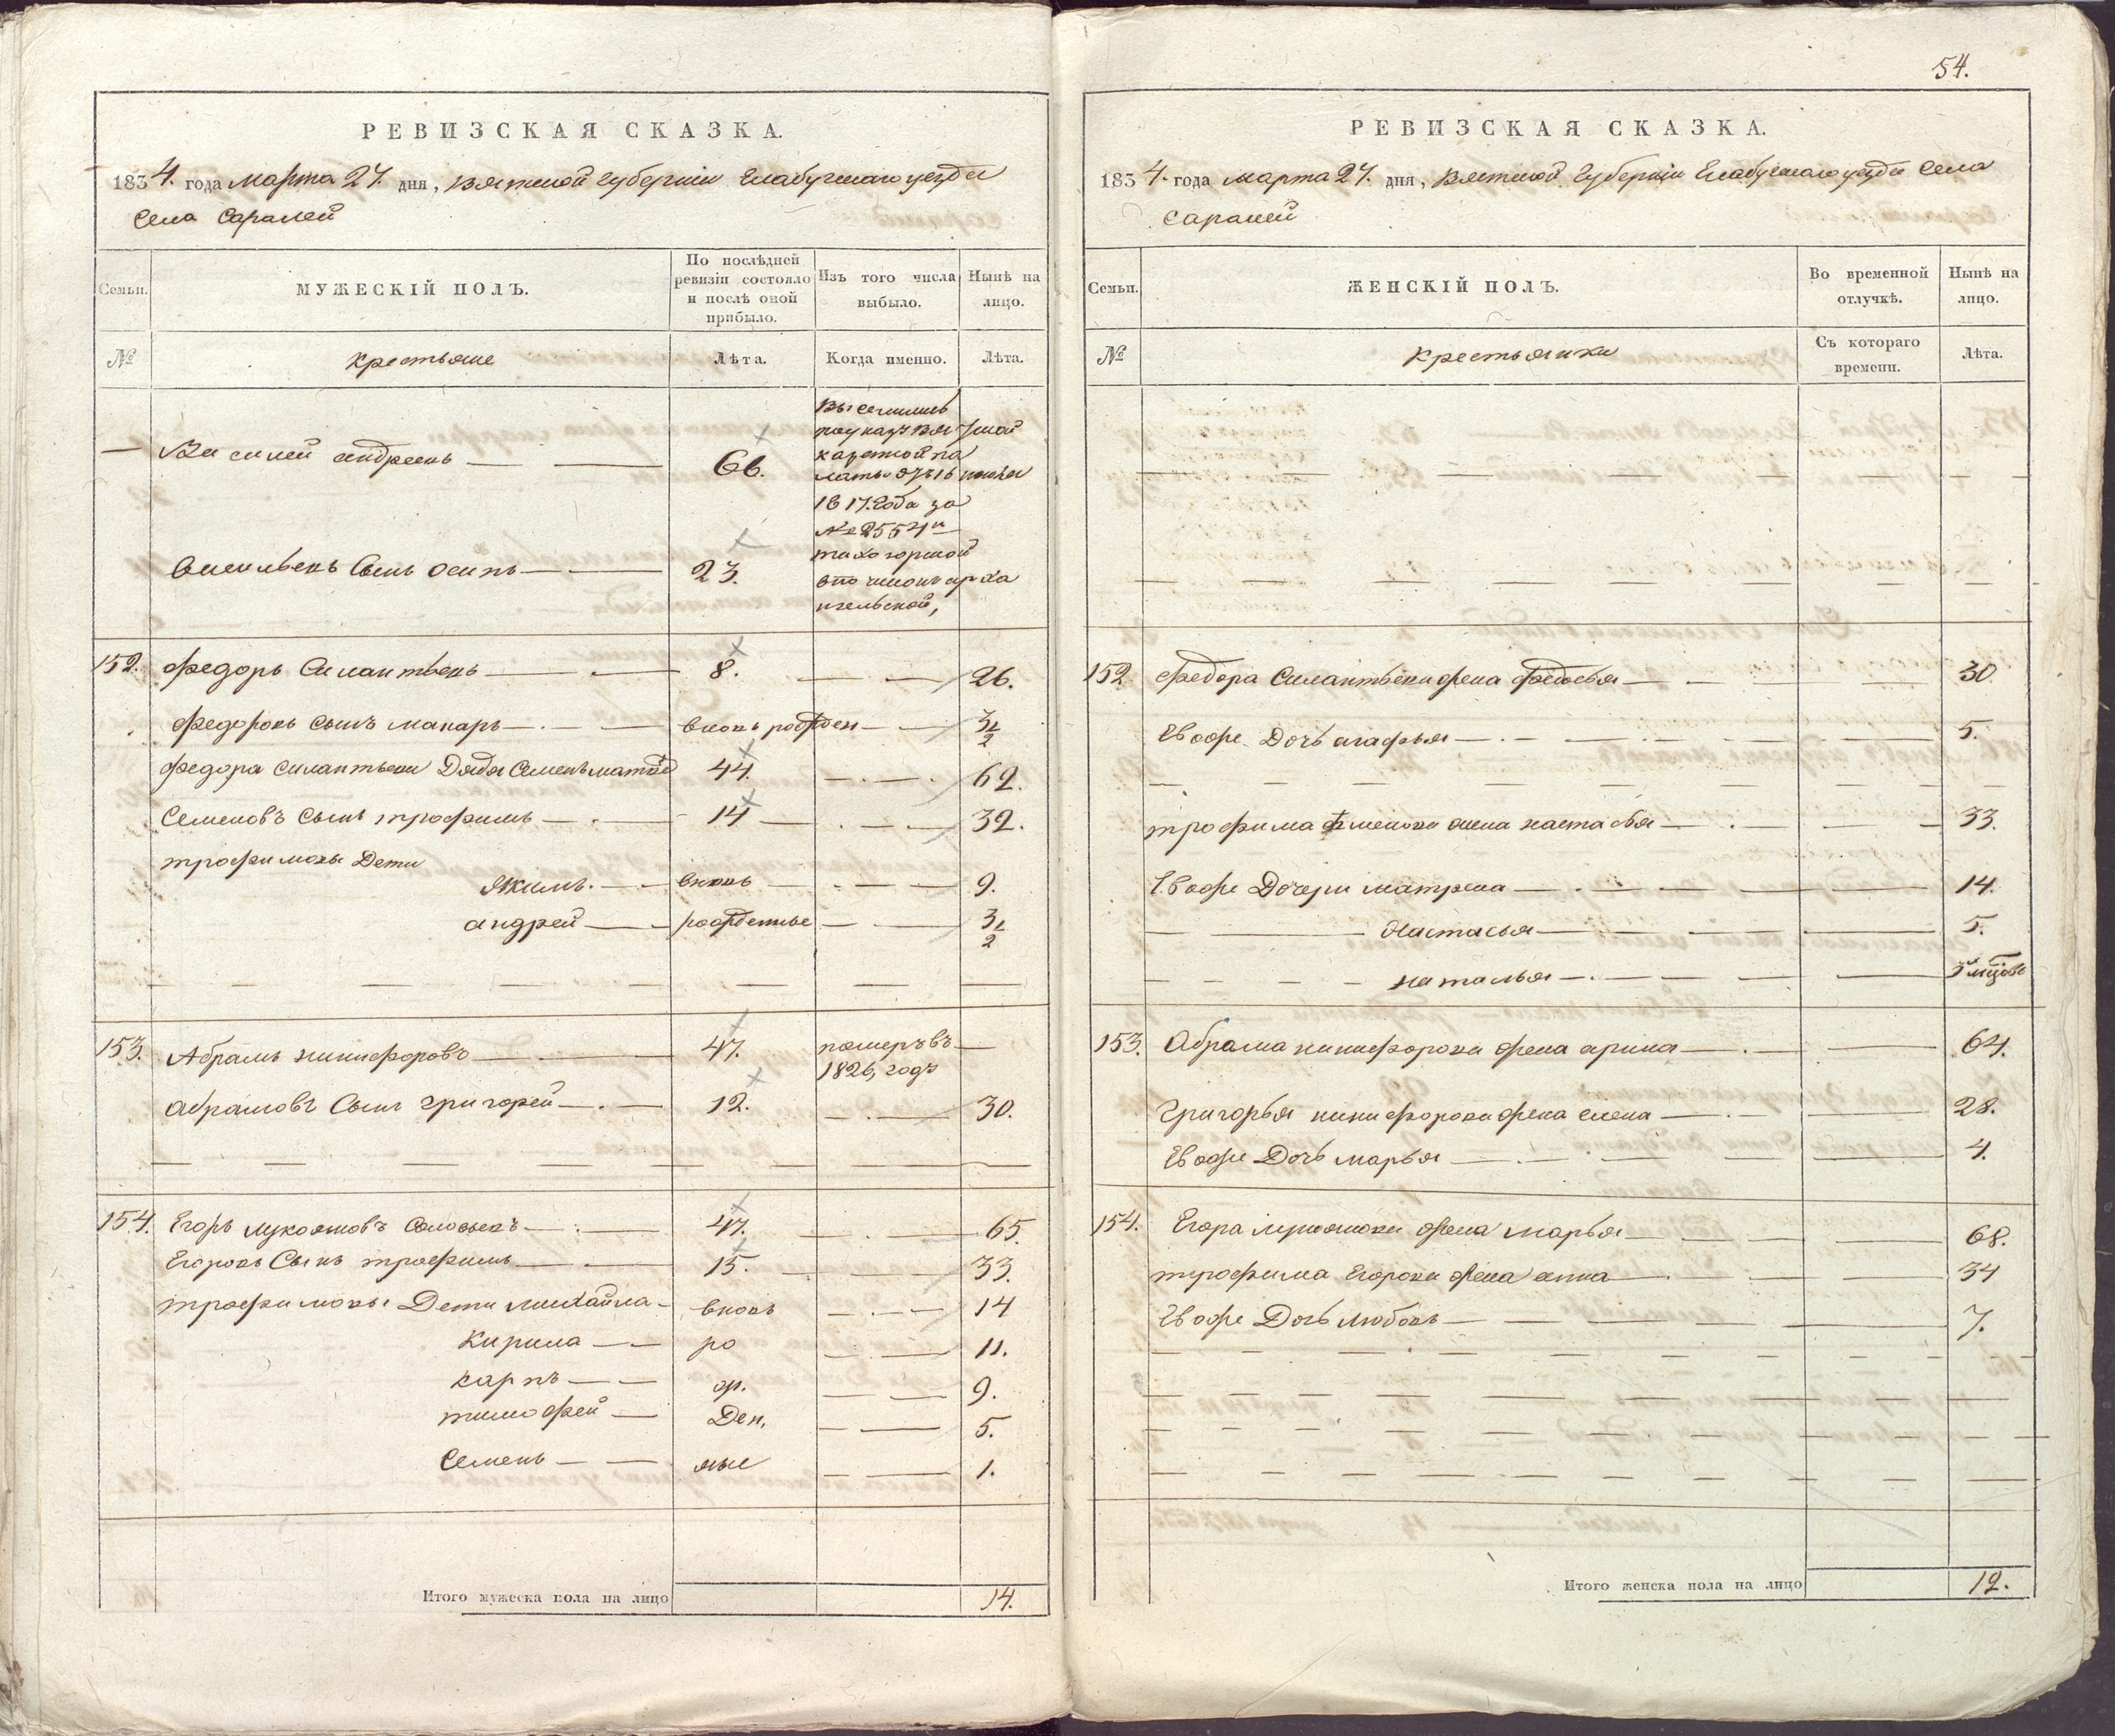 РЕВИЗСКАЯ СКАЗКА.
1834. года марта 27. дня, Вятской губернiи Елабугскаго уезда
села Саралей
Семьи. МУЖЕСКIЙ ПОЛЪ. По послѣдней ревизiи состояло и послѣ оной прибыло. Изъ того числа выбыло. Нынѣ на лицо.
№ Крестьяне Лѣта. Когда именно. Лѣта.
Василей андреевъ 66.
выселились
по указу вятской
казенной па
латы отъ 16
1817. года за
№ 2554 и
Васильевъ сынъ осипъ 23.
152. Федоръ Силантьевъ 8. 26.
Федоровъ сынъ макаръ вновь рожден 3 1/2
Федора силантьева дядя Семенъ 44. 62.
Семеновъ сынъ трофимъ 14 32.
трофимовы Дети
якимъ. вновь 9.
андрей рожденные 3 1/2
153. Абрамъ никифоровъ 47. померъ въ
1826, годъ
абрамовъ Сынъ григорей 12. 30.
154. Егоръ лукояновъ 47. 65.
Егоровъ Сынъ трофимъ 15. 33.
трофимовы Дети михайла вновь 14
кирила ро 11.
карпъ ж. 9.
тимофей Ден. 5.
Семенъ ные 1.
Итого мужеска пола на лицо 14.
54.
РЕВИЗСКАЯ СКАЗКА.
1834. года марта 27. дня, Вятской губернiи Елабугскаго уезда села
саралей
Семьи. ЖЕНСКIЙ ПОЛЪ. Во временной отлучкѣ. Нынѣ на лицо.
№ Крестьянки Съ котораго времени. Лѣта.
152 Федора Силантьева жена федосья 30
Евоже Дочь агафья 5.
трофима семенова жена настасья 33.
Евоже Дочери матрена 14.
Настасья 5.
наталья
153. Абрама никифорова жена арина 64.
Григорья никифорова жена елена 28.
Евоже Дочь марья 4.
154. Егора лукоянова жена марья 68.
трофима Егорова жена анна 34
Евоже Дочь любовь 7.
Итого женска пола на лицо 12.